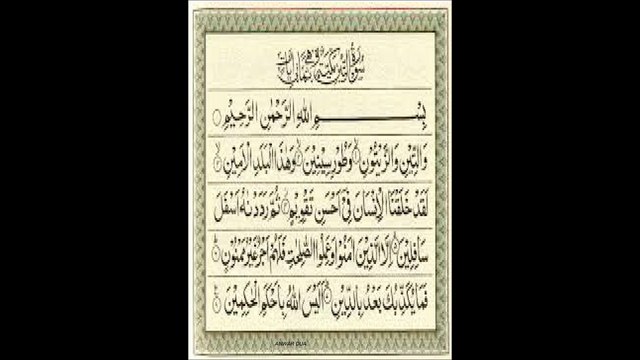 سُوْرَةُ التِّيْنِ مَكِّيَّةٌ وَّهِيَ ثَمَانِيْ اٰيَاتٍ
بِسْمِ اللهِ الرَّحْمٰنِ الرَّحِيْمِ
وَالتِّيْنِ وَالزَّيْتُوْنِ ۝ وَطُوْرِ سِيْنِيْنَ ۝ وَهٰذَا الْبَلَدِ الْاَمِيْنِ ۝
لَقَدْ خَلَقْنَا الْاِنْسَانَ فِيْٓ اَحْسَنِ تَقْوِيْمٍ ۝ ثُمَّ رَدَدْنٰهُ اَسْفَلَ
سَافِلِيْنَ ۝ اِلَّا الَّذِيْنَ اٰمَنُوْا وَعَمِلُوا الصّٰلِحٰتِ فَلَهُمْ اَجْرٌ غَيْرُ مَمْنُوْنٍ ۝
فَمَا يُكَذِّبُكَ بَعْدُ بِالدِّيْنِ ۝ اَلَيْسَ اللهُ بِاَحْكَمِ الْحٰكِمِيْنَ ۝
ANWAR DUA